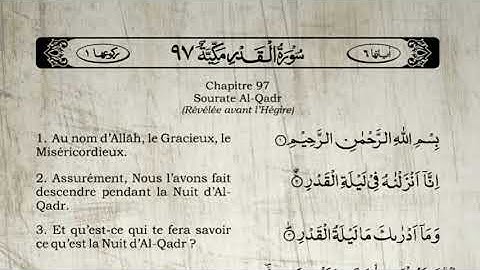 اٰیاتها ٦ سُوْرَةُ الْقَدْرِ مَكِّيَّةٌ ٩٧ رکوعها ١
Chapitre 97
Sourate Al-Qadr
(Révélée avant l'Hégire)
1. Au nom d'Allāh, le Gracieux, le
Miséricordieux.
بِسْمِ اللّٰهِ الرَّحْمٰنِ الرَّحِيْمِ ۝١
2. Assurément, Nous l'avons fait
descendre pendant la Nuit d'Al-
Qadr.
اِنَّاۤ اَنْزَلْنٰهُ فِيْ لَيْلَةِ الْقَدْرِ ۝٢
3. Et qu'est-ce qui te fera savoir
ce qu'est la Nuit d'Al-Qadr ?
وَمَاۤ اَدْرٰىكَ مَا لَيْلَةُ الْقَدْرِ ۝٣